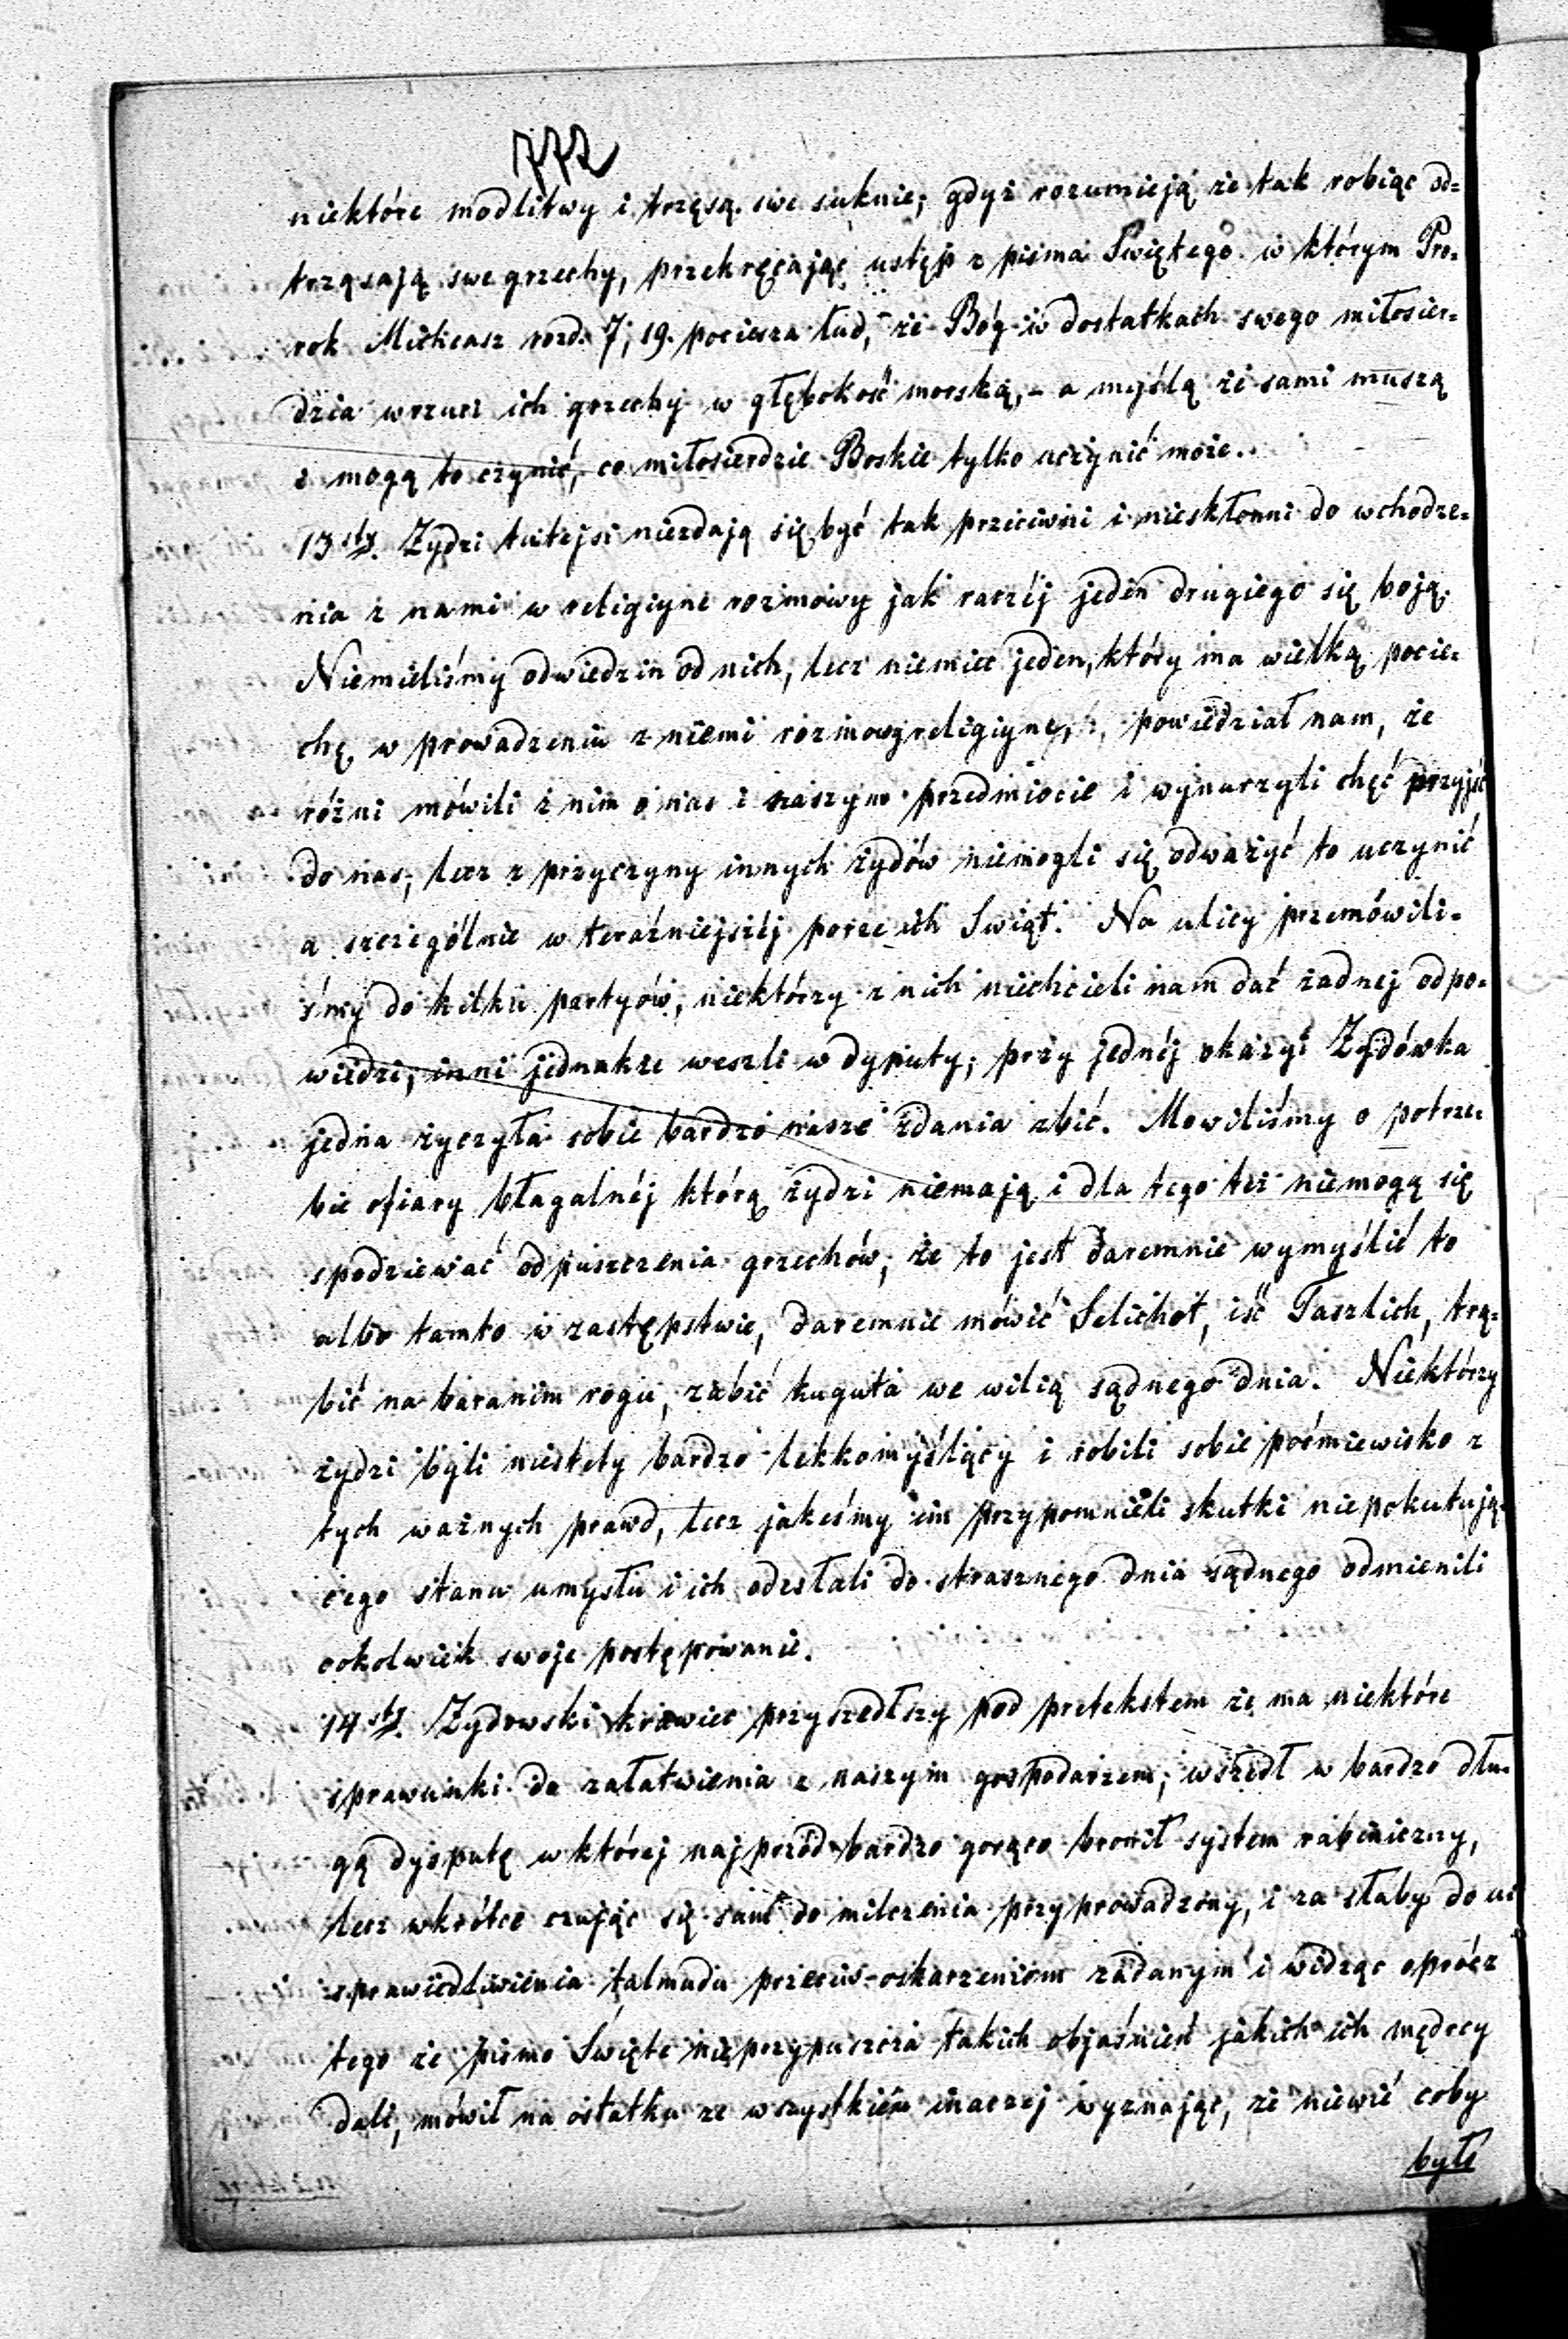 772
niektóre modlitwy i trzęsą swe suknie; gdyż rozumieją że tak robiąc od=
trząsają swe grzechy, przekręcając ustęp z pisma Swiętego w którym Pro=
rok Micheasz rozd. 7, 19. pociesza lud, że Bóg w dostatkach swego miłosier=
dzia wrzuci ich grzechy w głębokość morską, - a myślą że sami muszą
i mogą to czynić, co miłosierdzie Boskie tylko uczynić może.
13sty. Zydzi tutejsi niezdają się być tak przeciwni i niesktonni do wchodze=
nia z nami w religiyne rozmowy jak raczéj jeden drugiego się boją.
Niemieliśmy odwiedzin od nich, lecz niemiec jeden, który ma wielką pocie=
chę w prowadzeniu z niemi rozmowy religiyne, powiedział nam, że
różni mówili z nim o nas i naszym przedmiocie i wynurzyli chęć przyjść
do nas, lecz z przyczyny innych żydów niemogli się odważyć to uczynić
a szczególnie w teraźniejszéj porze ich Swiąt. Na ulicy przemówili=
śmy do kilku partyów, niektórzy z nich niechcieli nam dać żadnej odpo=
wiedzi, inni jednakże weszli w dyputy; przy jednéj okazyi Zydówka
jedna życzyła sobie bardzo nasze zdania zbić. Mowiliśmy o potrze=
bie ofiary błagalnéj którą żydzi niemają i dla tego też niemogą się
spodziewać odpuszczenia grzechów, że to jest daremnie wymyślić to
albo tamto w zastępstwie, daremnie mówić Selichot, iść Taszlich, trą=
bić na baranim rogu, zabić kuguta we wilią sądnego dnia. Niektórzy
żydzi byli niestety bardzo lekkomyślący i robili sobie pośmiewisko z
tych ważnych prawd, lecz jakeśmy im przypomnieli skutki niepokutują=
cego stanu umysłu i ich odesłali do strasznego dnia sądnego odmienili
cokolwiek swoje postępowanie.
14sty. Zydowski krawiec przyszedłszy pod pretekstem że ma niektóre
sprawunki do załatwienia z naszym gospodarzem, wszedł w bardzo dłu=
gą dysputę w której najprzód bardzo gorąco bronił system rabiniczny,
lecz wkrótce czując się sam do milczenia przyprowadzony, i za słaby do u=
sprawiedliwienia talmudu przeciw oskarzeniom zadanym i widząc oprócz
tego że pismo Swięte nieprzypuszcza takich objaśnień jakich ich mędrcy
dali, mówił na ostatku ze wszystkiém inaczej wyznając, że niewié coby
było